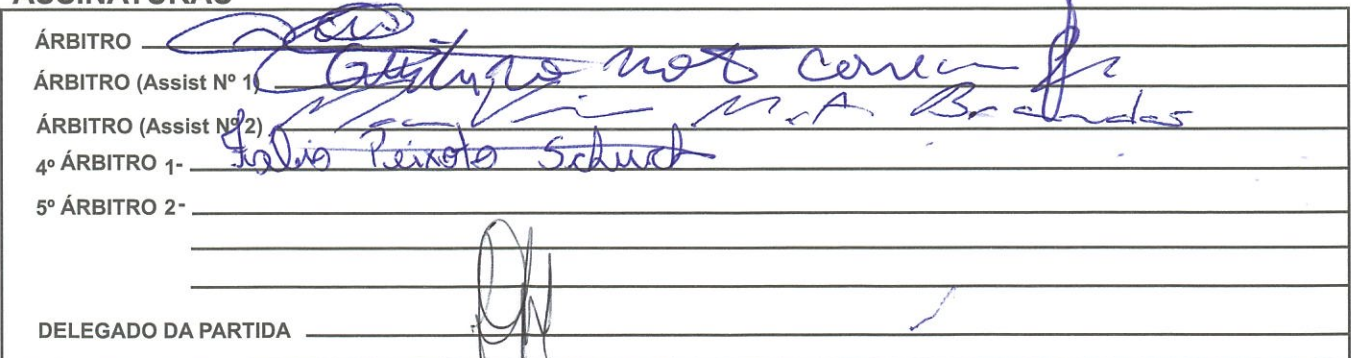 ASSINATURAS
ÁRBITRO
ÁRBITRO (Assist Nº 1)
ÁRBITRO (Assist Nº 2) M. A Brandas
4º ÁRBITRO 1- Fabio Peixoto Schuch
5º ÁRBITRO 2-
DELEGADO DA PARTIDA